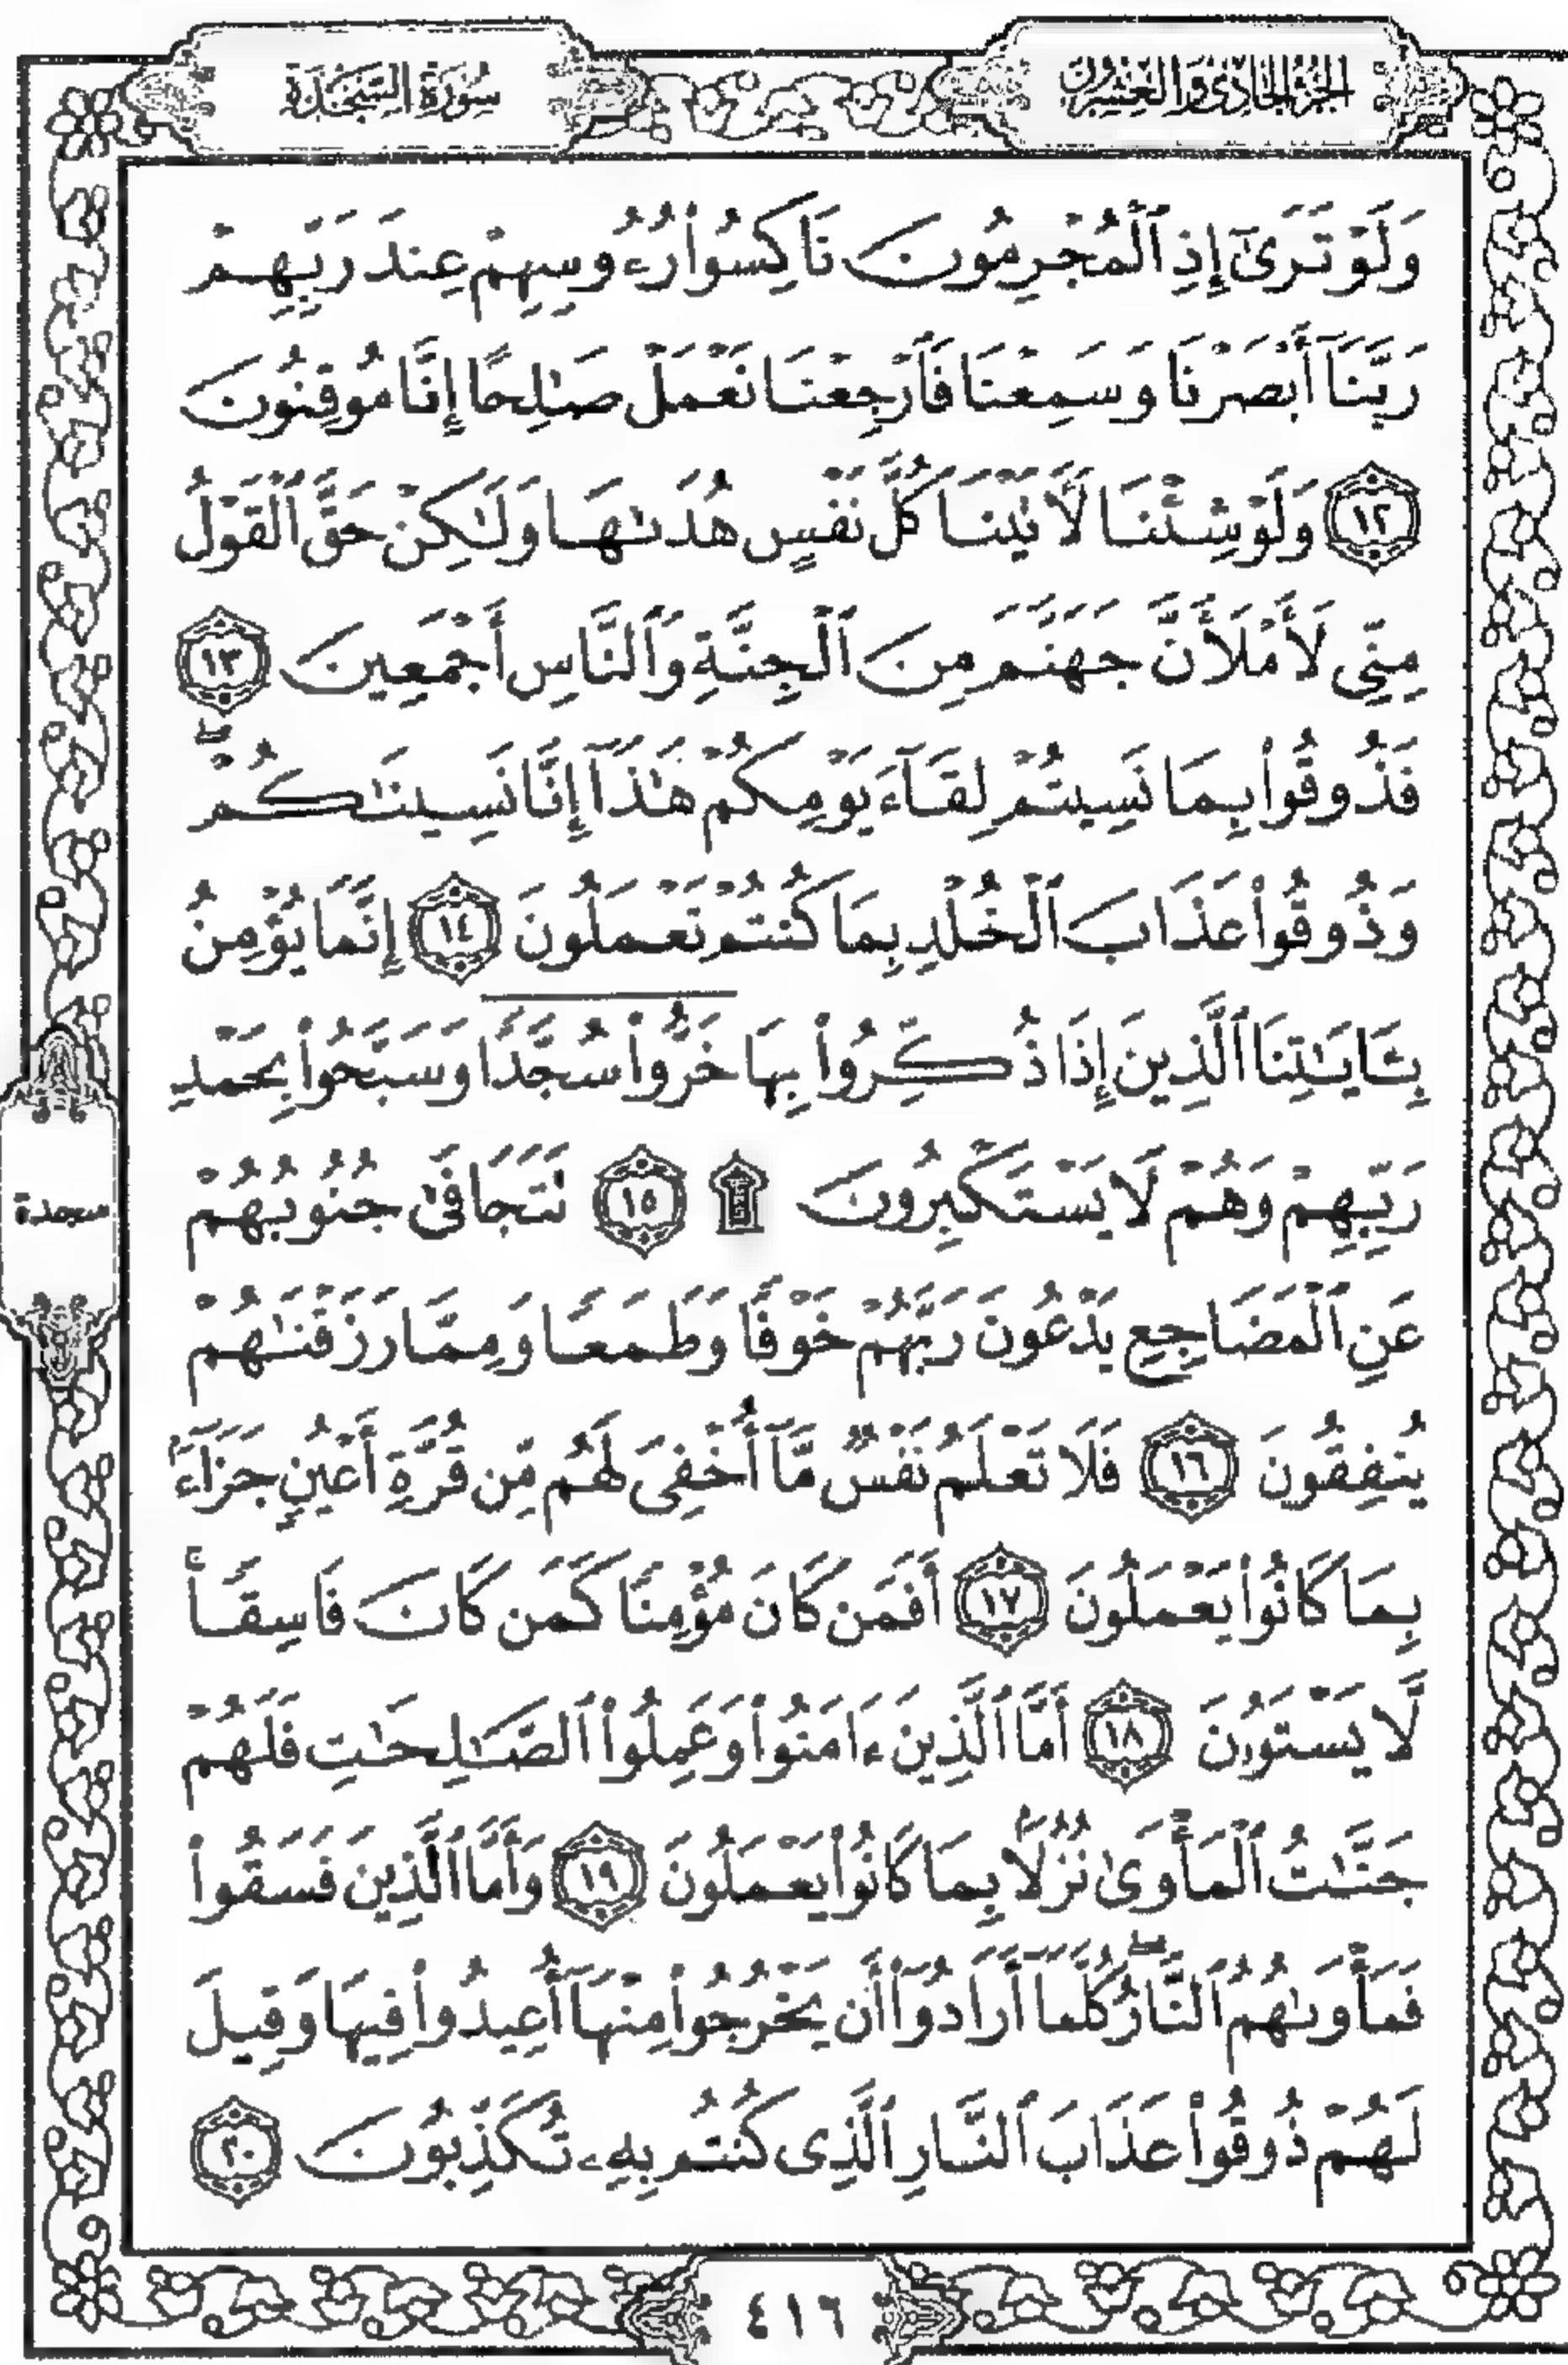 الجزء الحادي والعشرون
سورة السجدة
وَلَوْ تَرَىٰٓ إِذِ ٱلْمُجْرِمُونَ نَاكِسُوا۟ رُءُوسِهِمْ عِندَ رَبِّهِمْ
رَبَّنَآ أَبْصَرْنَا وَسَمِعْنَا فَٱرْجِعْنَا نَعْمَلْ صَٰلِحًا إِنَّا مُوقِنُونَ
١٢ وَلَوْ شِئْنَا لَءَاتَيْنَا كُلَّ نَفْسٍ هُدَىٰهَا وَلَٰكِنْ حَقَّ ٱلْقَوْلُ
مِنِّى لَأَمْلَأَنَّ جَهَنَّمَ مِنَ ٱلْجِنَّةِ وَٱلنَّاسِ أَجْمَعِينَ ١٣
فَذُوقُوا۟ بِمَا نَسِيتُمْ لِقَآءَ يَوْمِكُمْ هَٰذَآ إِنَّا نَسِينَٰكُمْ ۖ
وَذُوقُوا۟ عَذَابَ ٱلْخُلْدِ بِمَا كُنتُمْ تَعْمَلُونَ ١٤ إِنَّمَا يُؤْمِنُ
بِـَٔايَٰتِنَا ٱلَّذِينَ إِذَا ذُكِّرُوا۟ بِهَا خَرُّوا۟ سُجَّدًا وَسَبَّحُوا۟ بِحَمْدِ
رَبِّهِمْ وَهُمْ لَا يَسْتَكْبِرُونَ ۩ ١٥ تَتَجَافَىٰ جُنُوبُهُمْ
سجدة
عَنِ ٱلْمَضَاجِعِ يَدْعُونَ رَبَّهُمْ خَوْفًا وَطَمَعًا وَمِمَّا رَزَقْنَٰهُمْ
يُنفِقُونَ ١٦ فَلَا تَعْلَمُ نَفْسٌ مَّآ أُخْفِىَ لَهُم مِّن قُرَّةِ أَعْيُنٍ جَزَآءًۢ
بِمَا كَانُوا۟ يَعْمَلُونَ ١٧ أَفَمَن كَانَ مُؤْمِنًا كَمَن كَانَ فَاسِقًا ۚ
لَّا يَسْتَوُۥنَ ١٨ أَمَّا ٱلَّذِينَ ءَامَنُوا۟ وَعَمِلُوا۟ ٱلصَّٰلِحَٰتِ فَلَهُمْ
جَنَّٰتُ ٱلْمَأْوَىٰ نُزُلًۢا بِمَا كَانُوا۟ يَعْمَلُونَ ١٩ وَأَمَّا ٱلَّذِينَ فَسَقُوا۟
فَمَأْوَىٰهُمُ ٱلنَّارُ ۖ كُلَّمَآ أَرَادُوٓا۟ أَن يَخْرُجُوا۟ مِنْهَآ أُعِيدُوا۟ فِيهَا وَقِيلَ
لَهُمْ ذُوقُوا۟ عَذَابَ ٱلنَّارِ ٱلَّذِى كُنتُم بِهِۦ تُكَذِّبُونَ ٢٠
٤١٦